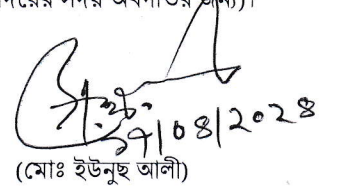 সদয় অবগতির জন্য)।
|০৪|২০২৪
(মোঃ ইউনুছ আলী)